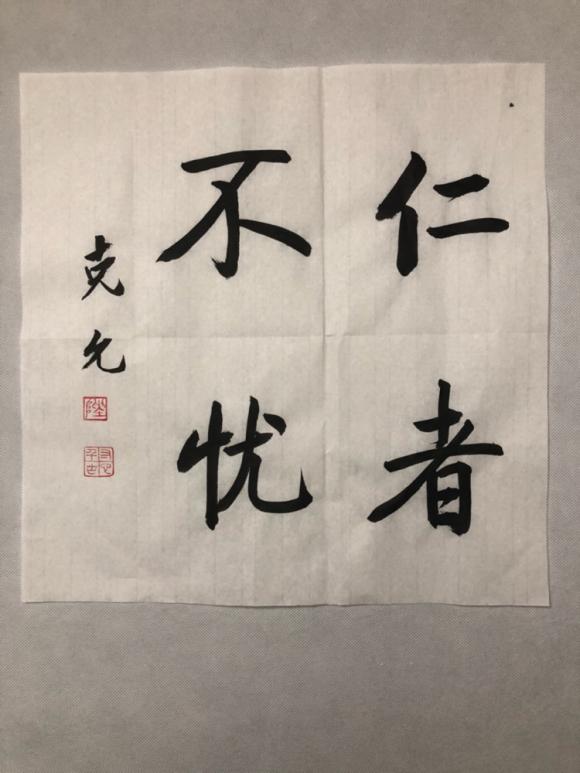 仁者
不忧
克允